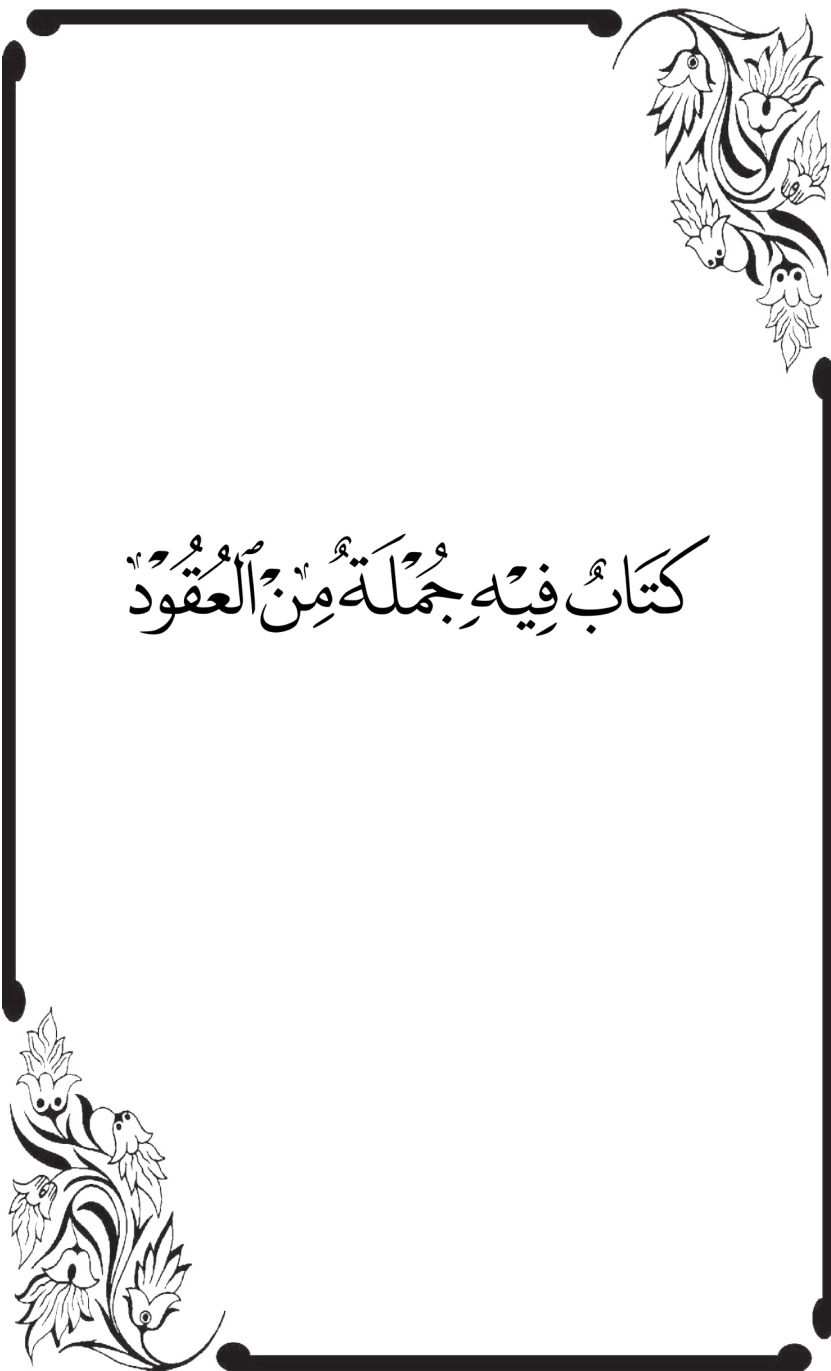 كِتَابٌ فِيْهِ جُمْلَةٌ مِنْ ٱلْعُقُوْدْ